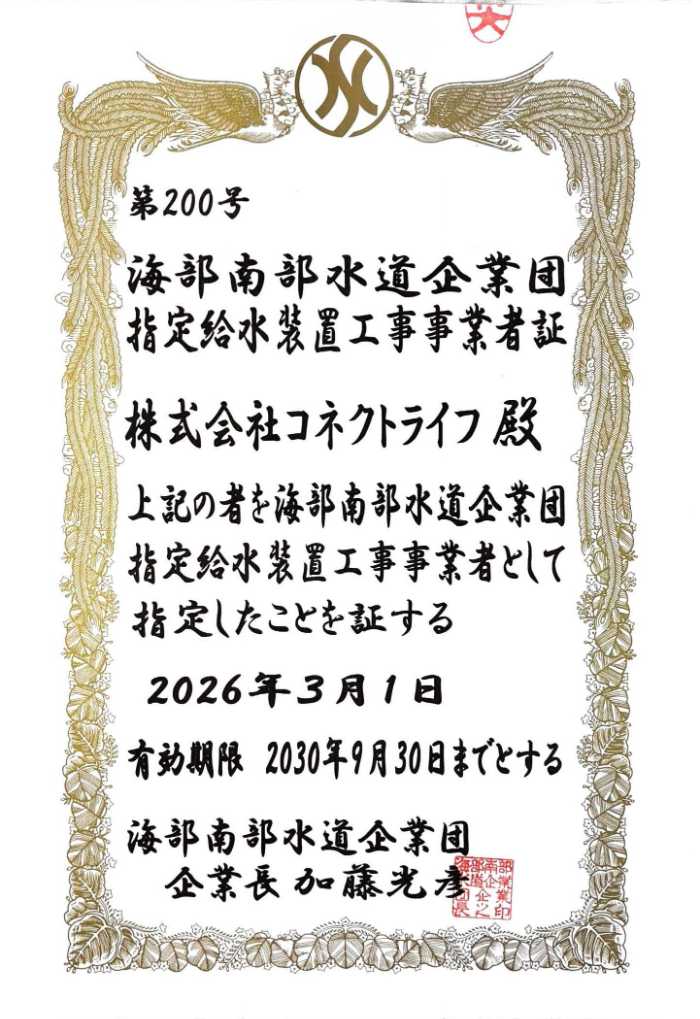 第200号
海部南部水道企業団
指定給水装置工事事業者証
株式会社コネクトライフ 殿
上記の者を海部南部水道企業団
指定給水装置工事事業者として
指定したことを証する
2026年3月1日
有効期限 2030年9月30日までとする
海部南部水道企業団
企業長 加藤光彦